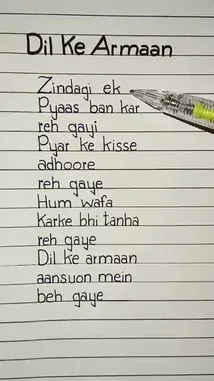 Dil Ke Armaan
Zindagi ek
Pyaas ban kar
reh gayi
Pyar ke kisse
adhoore
reh gaye
Hum wafa
Karke bhi tanha
reh gaye
Dil ke armaan
aansuon mein
beh gaye